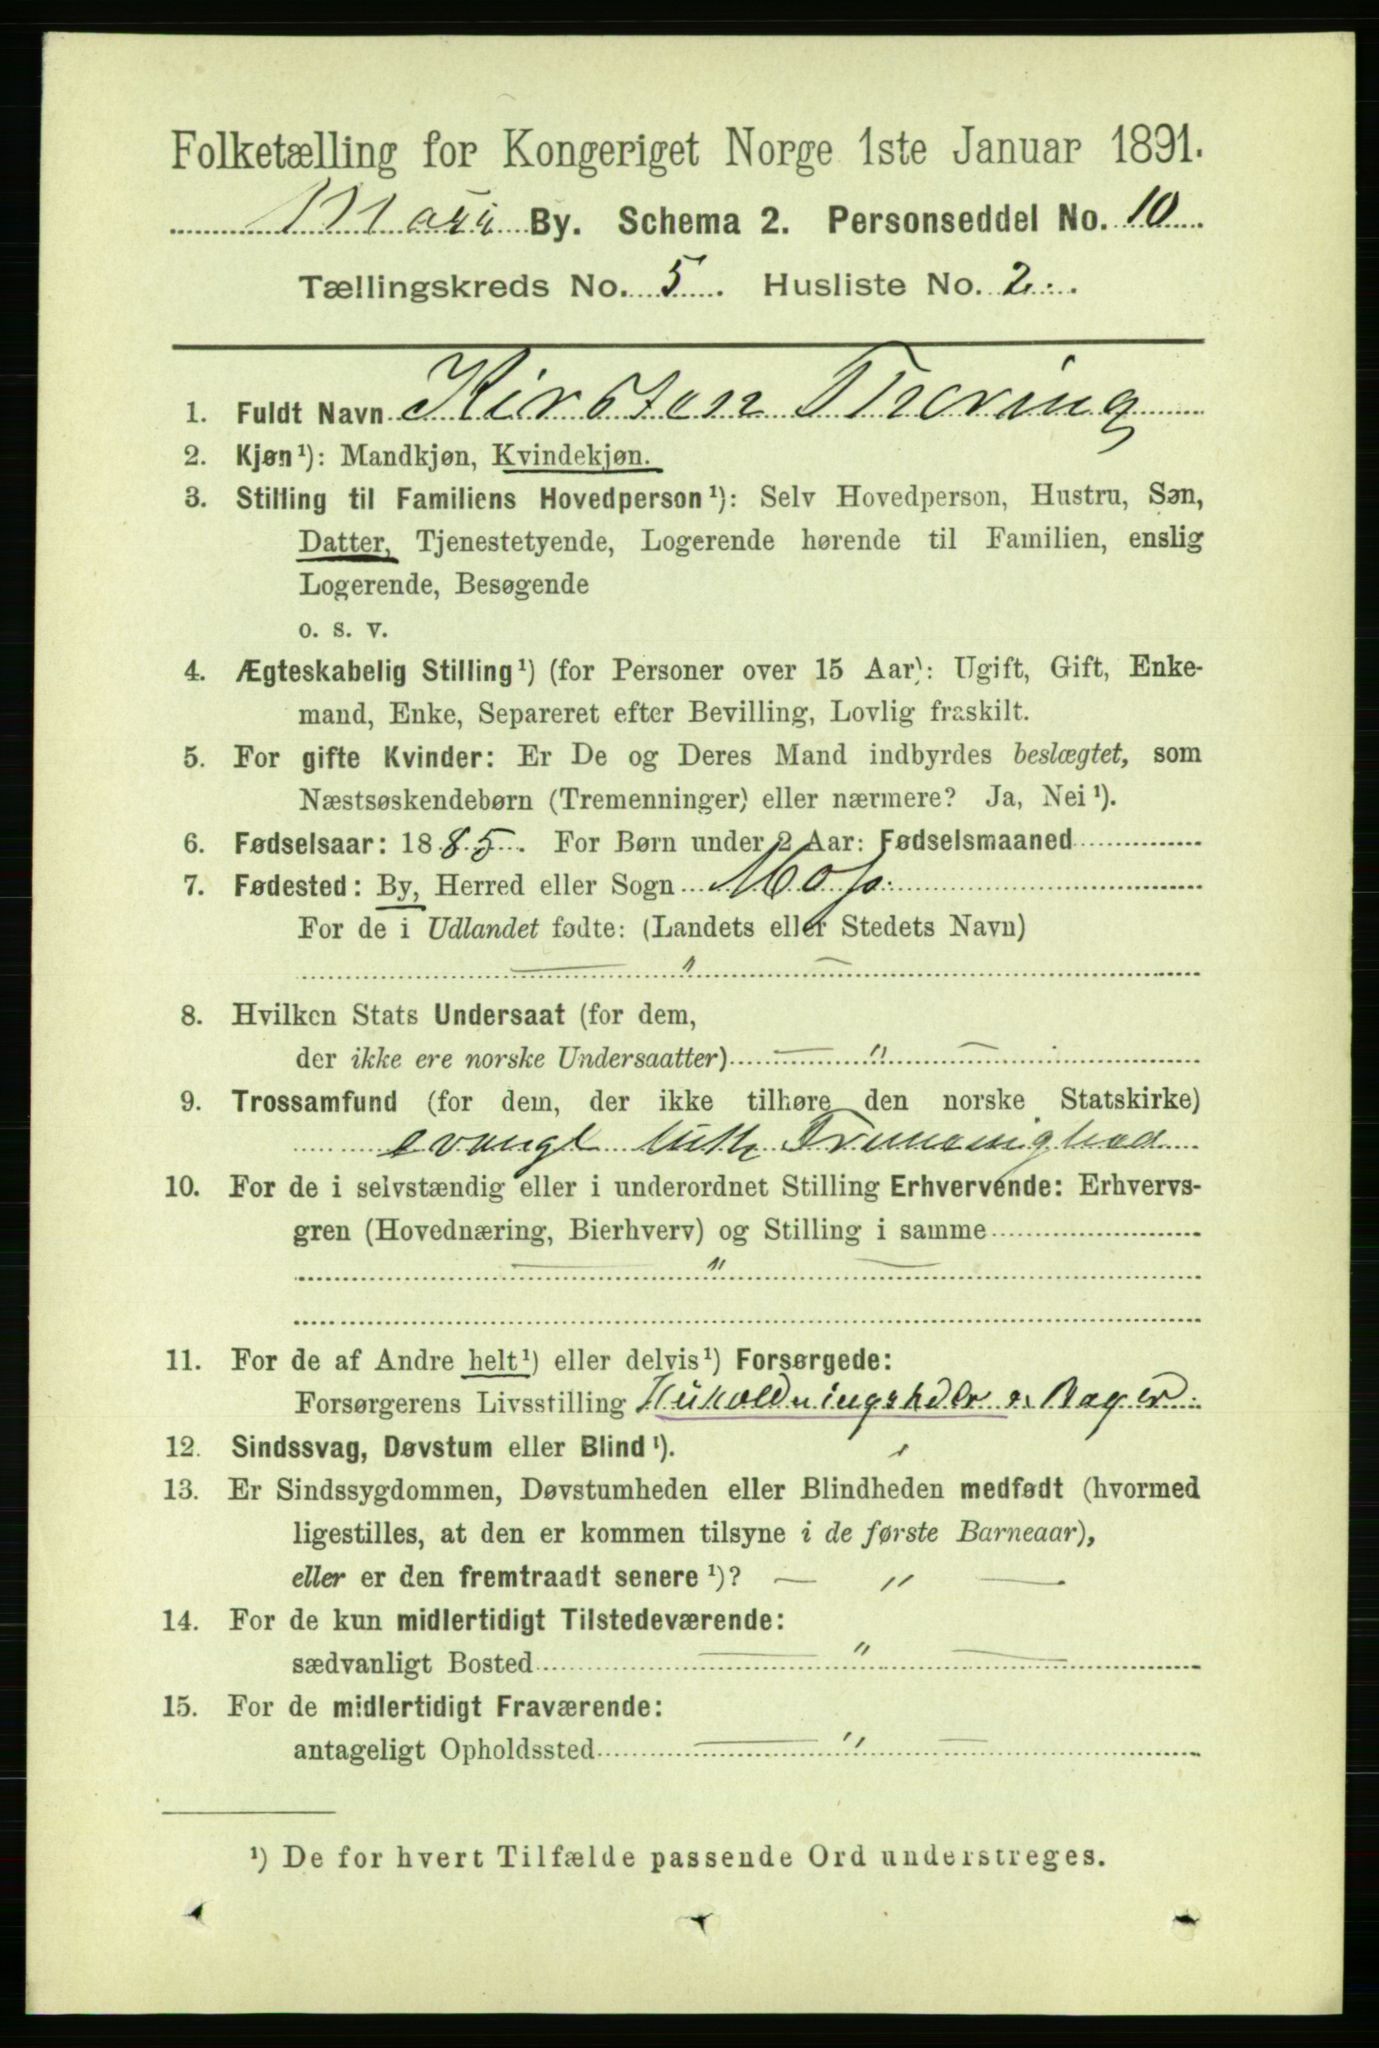 Folketælling for Kongeriget Norge 1ste Januar 1891.
By. Schema 2. Personseddel No. 10
Tællingskreds No. 5. Husliste No. 2.
1. Fuldt Navn Kirsten Thoring
2. Kjøn¹): Mandkjøn, Kvindekjøn.
3. Stilling til Familiens Hovedperson¹): Selv Hovedperson, Hustru, Søn,
Datter, Tjenestetyende, Logerende hørende til Familien, enslig
Logerende, Besøgende
o. s. v.
4. Ægteskabelig Stilling¹) (for Personer over 15 Aar): Ugift, Gift, Enke-
mand, Enke, Separeret efter Bevilling, Lovlig fraskilt.
5. For gifte Kvinder: Er De og Deres Mand indbyrdes beslægtet, som
Næstsøskendebørn (Tremenninger) eller nærmere? Ja, Nei¹).
6. Fødselsaar: 1885. For Børn under 2 Aar: Fødselsmaaned
7. Fødested: By, Herred eller Sogn Moss
For de i Udlandet fødte: (Landets eller Stedets Navn)
— " —
8. Hvilken Stats Undersaat (for dem,
der ikke ere norske Undersaatter) — " —
9. Trossamfund (for dem, der ikke tilhøre den norske Statskirke)
evangl luth Frimenighed
10. For de i selvstændig eller i underordnet Stilling Erhvervende: Erhvervs-
gren (Hovednæring, Bierhverv) og Stilling i samme
— " —
11. For de af Andre helt¹) eller delvis¹) Forsørgede:
Forsørgerens Livsstilling Bager
12. Sindssvag, Døvstum eller Blind¹).
13. Er Sindssygdommen, Døvstumheden eller Blindheden medfødt (hvormed
ligestilles, at den er kommen tilsyne i de første Barneaar),
eller er den fremtraadt senere¹)? — " —
14. For de kun midlertidigt Tilstedeværende:
sædvanligt Bosted — " —
15. For de midlertidigt Fraværende:
antageligt Opholdssted — " —
¹) De for hvert Tilfælde passende Ord understreges.